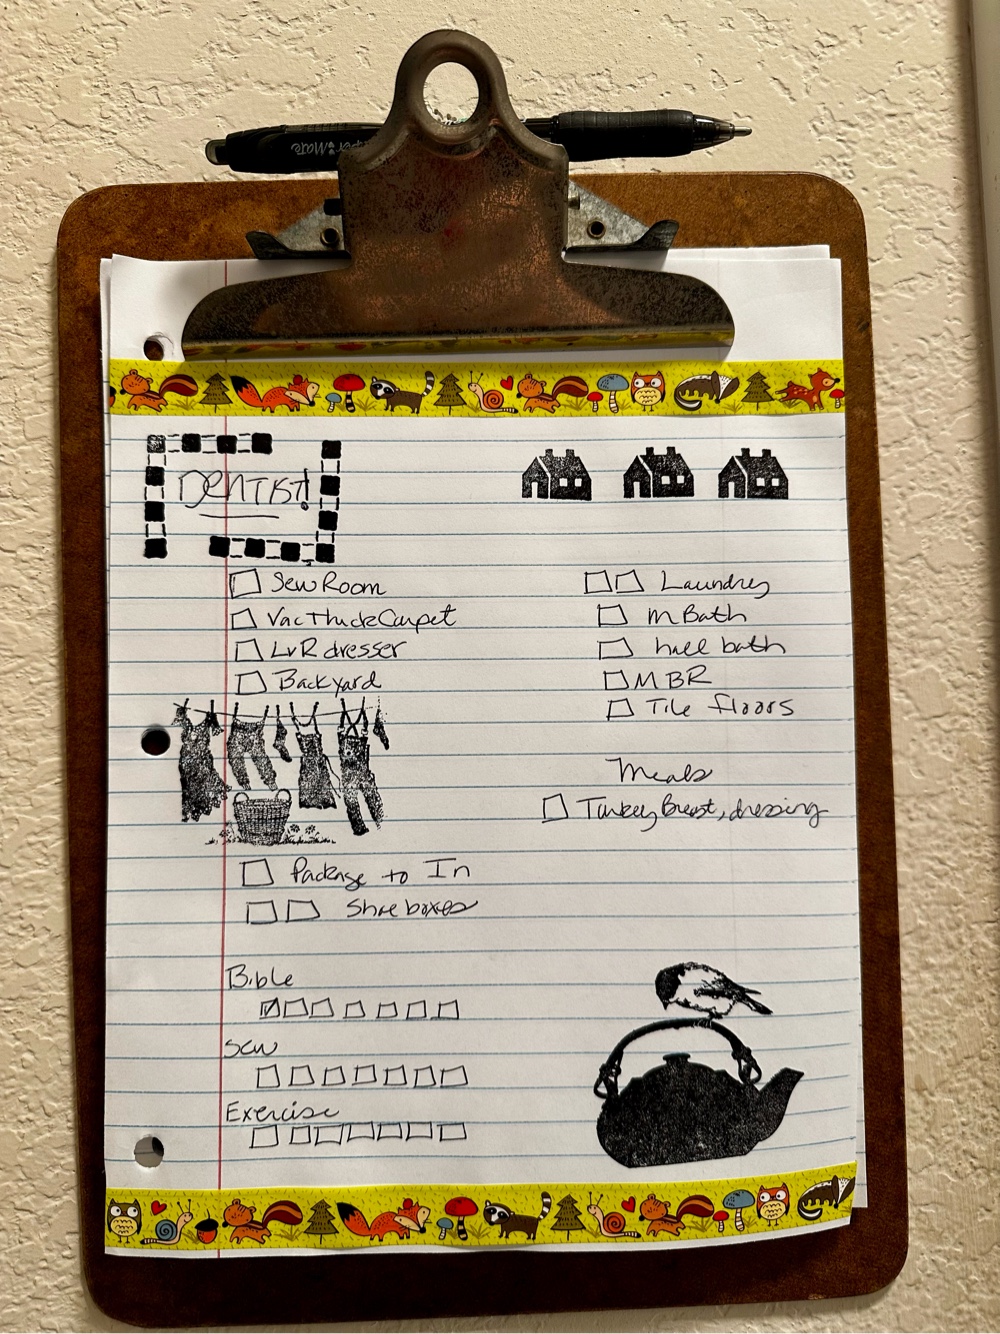 PaperMate
DENTIST!
Sew Room
Vac Thick Carpet
LvR dresser
Backyard
Laundry
M Bath
hall bath
MBR
Tile floors
Meals
Turkey Breast, dressing
Package to In
Shoe boxes
Bible
Sew
Exercise